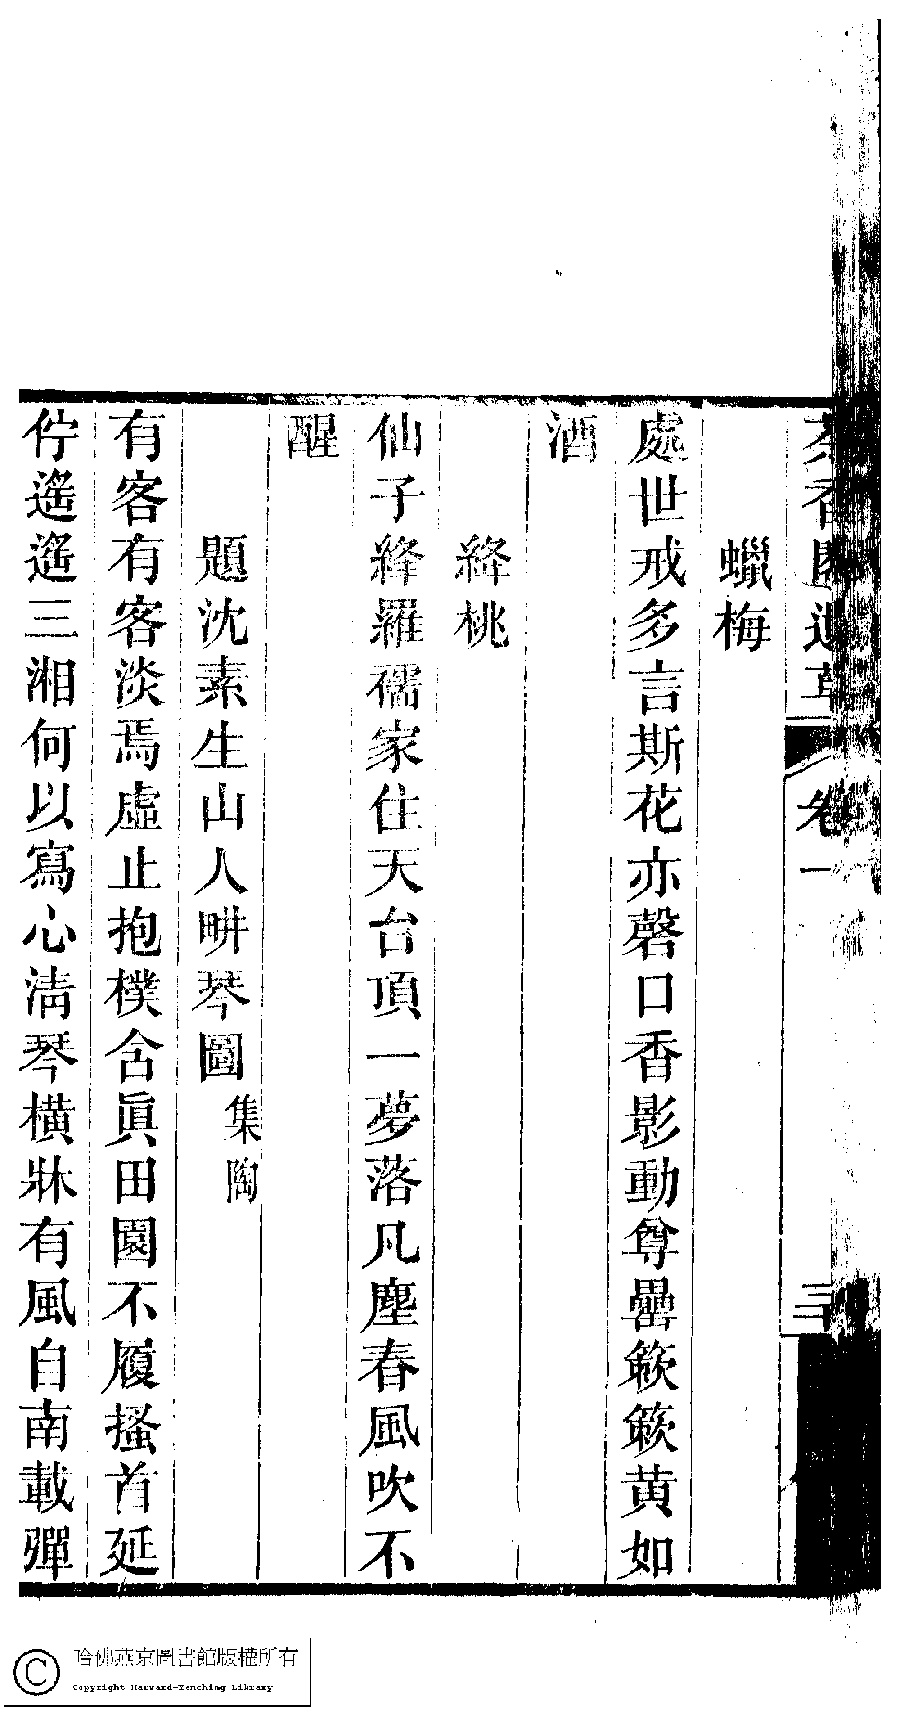 香遺草
卷一
三
蠟梅
處世戒多言斯花亦磬口香影動尊罍簌簌黃如
酒
絳桃
仙子絳羅襦家住天台頂一夢落凡塵春風吹不
醒
題沈素生山人畊琴圖集陶
有客有客淡焉虛止抱樸含眞田園不履搔首延
佇遙遙三湘何以寫心清琴橫牀有風自南載彈
哈佛燕京圖書館版權所有
Copyright Harvard-Yenching Library